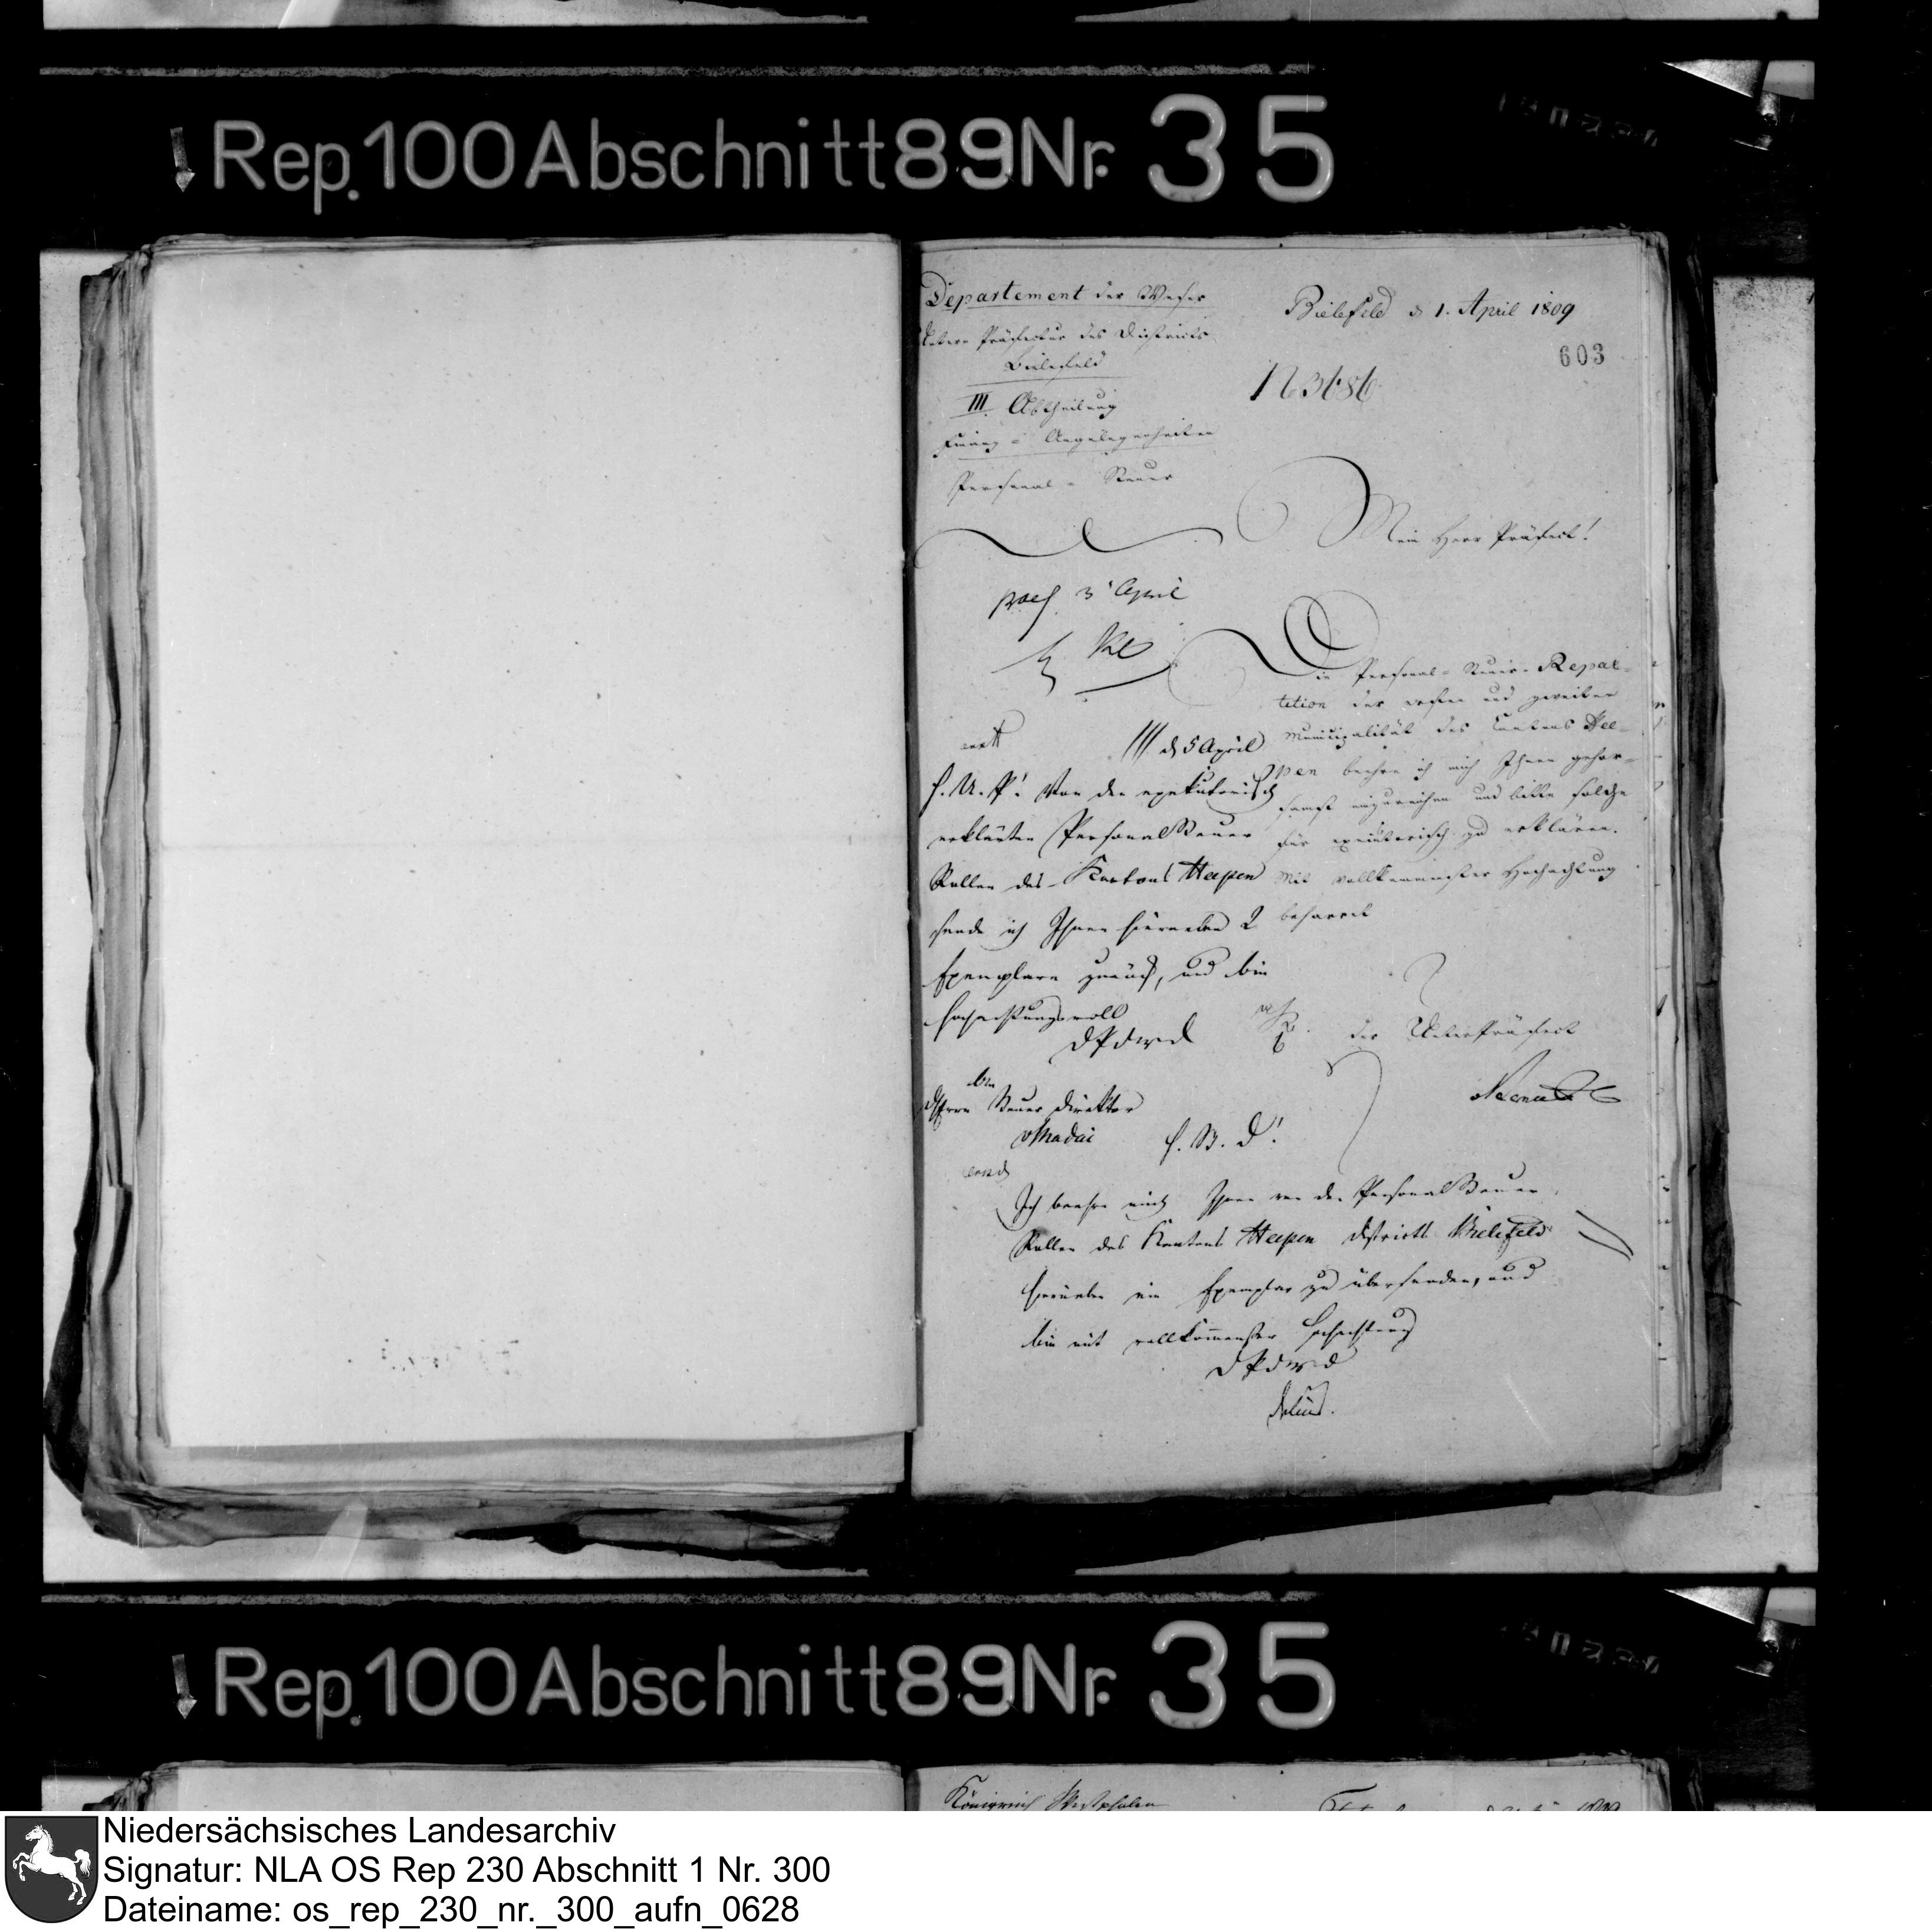 Rep. 100 Abschnitt 89 Nr. 35
Departement der Weser
Unter Präfectur des Districts
Bielefeld
III. Abtheilung
Finanz = Angelegenheiten
Personal = Steuer
Bielefeld d 1. April 1809
603
N 3686
Mein Herr Präfect!
praes. 3 April
Die Personal = Steuer = Repar=
tition der ersten und zweiten
Municipalität des Cantons Hee=
pen beehre ich mich Ihnen gehor=
samst einzureichen und bitte solche
für executorisch zu erklären.
Mit vollkommenster Hochachtung
beharret
der Unterpräfect
III d 5 April
H. U. P.! Von den exekutorisch
erklärten Personal Steuer
Rollen des Kantons Heepen
sende ich Ihnen hierneben 2
Exemplare zurück, und bin
hochachtungsvoll
D P d W D
Herrn Steuer Direktor
v Madai
H. St. D!
Ich beehre mich Ihnen von den Personal Steuer
Rollen des Kantons Heepen Districts Bielefeld
hierneben ein Exemplar zu übersenden, und
bin mit vollkommenster Hochachtung
D P d W D
Delius.
Rep. 100 Abschnitt 89 Nr. 35
Königreich Westphalen
Niedersächsisches Landesarchiv
Signatur: NLA OS Rep 230 Abschnitt 1 Nr. 300
Dateiname: os_rep_230_nr._300_aufn_0628